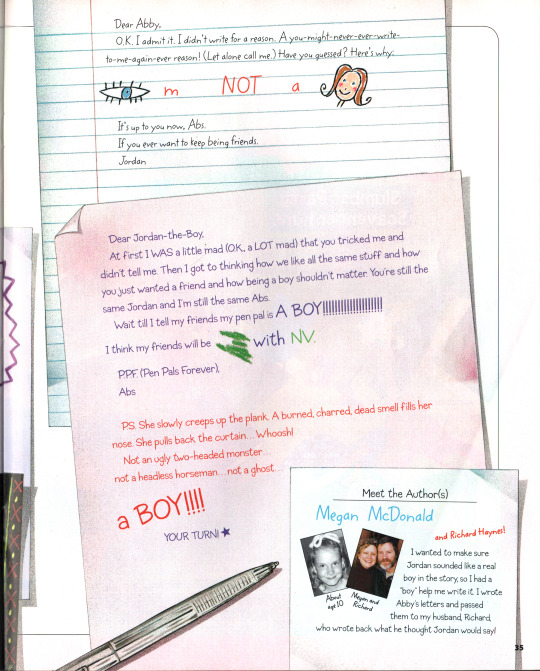 Dear Abby,
O.K. I admit it. I didn't write for a reason. A you-might-never-ever-write-
to-me-again-ever reason! (Let alone call me.) Have you guessed? Here's why:
m NOT a
It's up to you now, Abs.
If you ever want to keep being friends.
Jordan
Dear Jordan-the-Boy,
At first I WAS a little mad (OK, a LOT mad) that you tricked me and
didn't tell me. Then I got to thinking how we like all the same stuff and how
you just wanted a friend and how being a boy shouldn't matter. You're still the
same Jordan and I'm still the same Abs.
Wait till I tell my friends my pen pal is A BOY!!!!!!!!!!!!!!!!!!!!
I think my friends will be with NV.
P.P.F. (Pen Pals Forever),
Abs
P.S. She slowly creeps up the plank. A burned, charred, dead smell fills her
nose. She pulls back the curtain... Whoosh!
Not an ugly two-headed monster...
not a headless horseman...not a ghost...
a BOY!!!!
YOUR TURN! ★
Meet the Author(s)
Megan McDonald
and Richard Haynes!
About
age 10
Megan and
Richard
I wanted to make sure
Jordan sounded like a real
boy in the story, so I had a
"boy" help me write it. I wrote
Abby's letters and passed
them to my husband, Richard,
who wrote back what he thought Jordan would say!
35